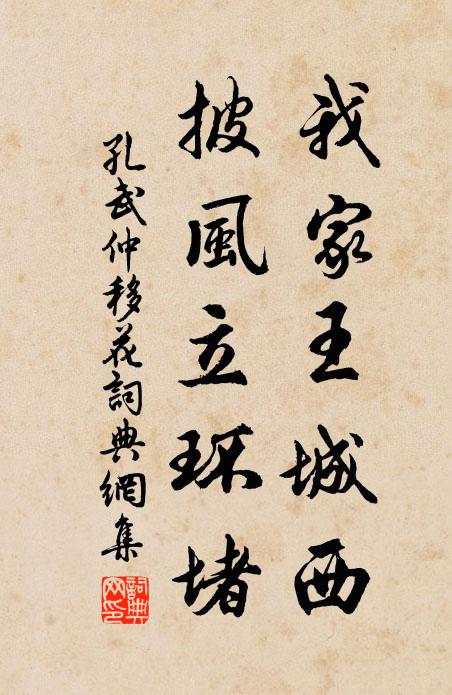 我家王城西
披風立环堵
孔武仲移花詞典網集
詞典網印